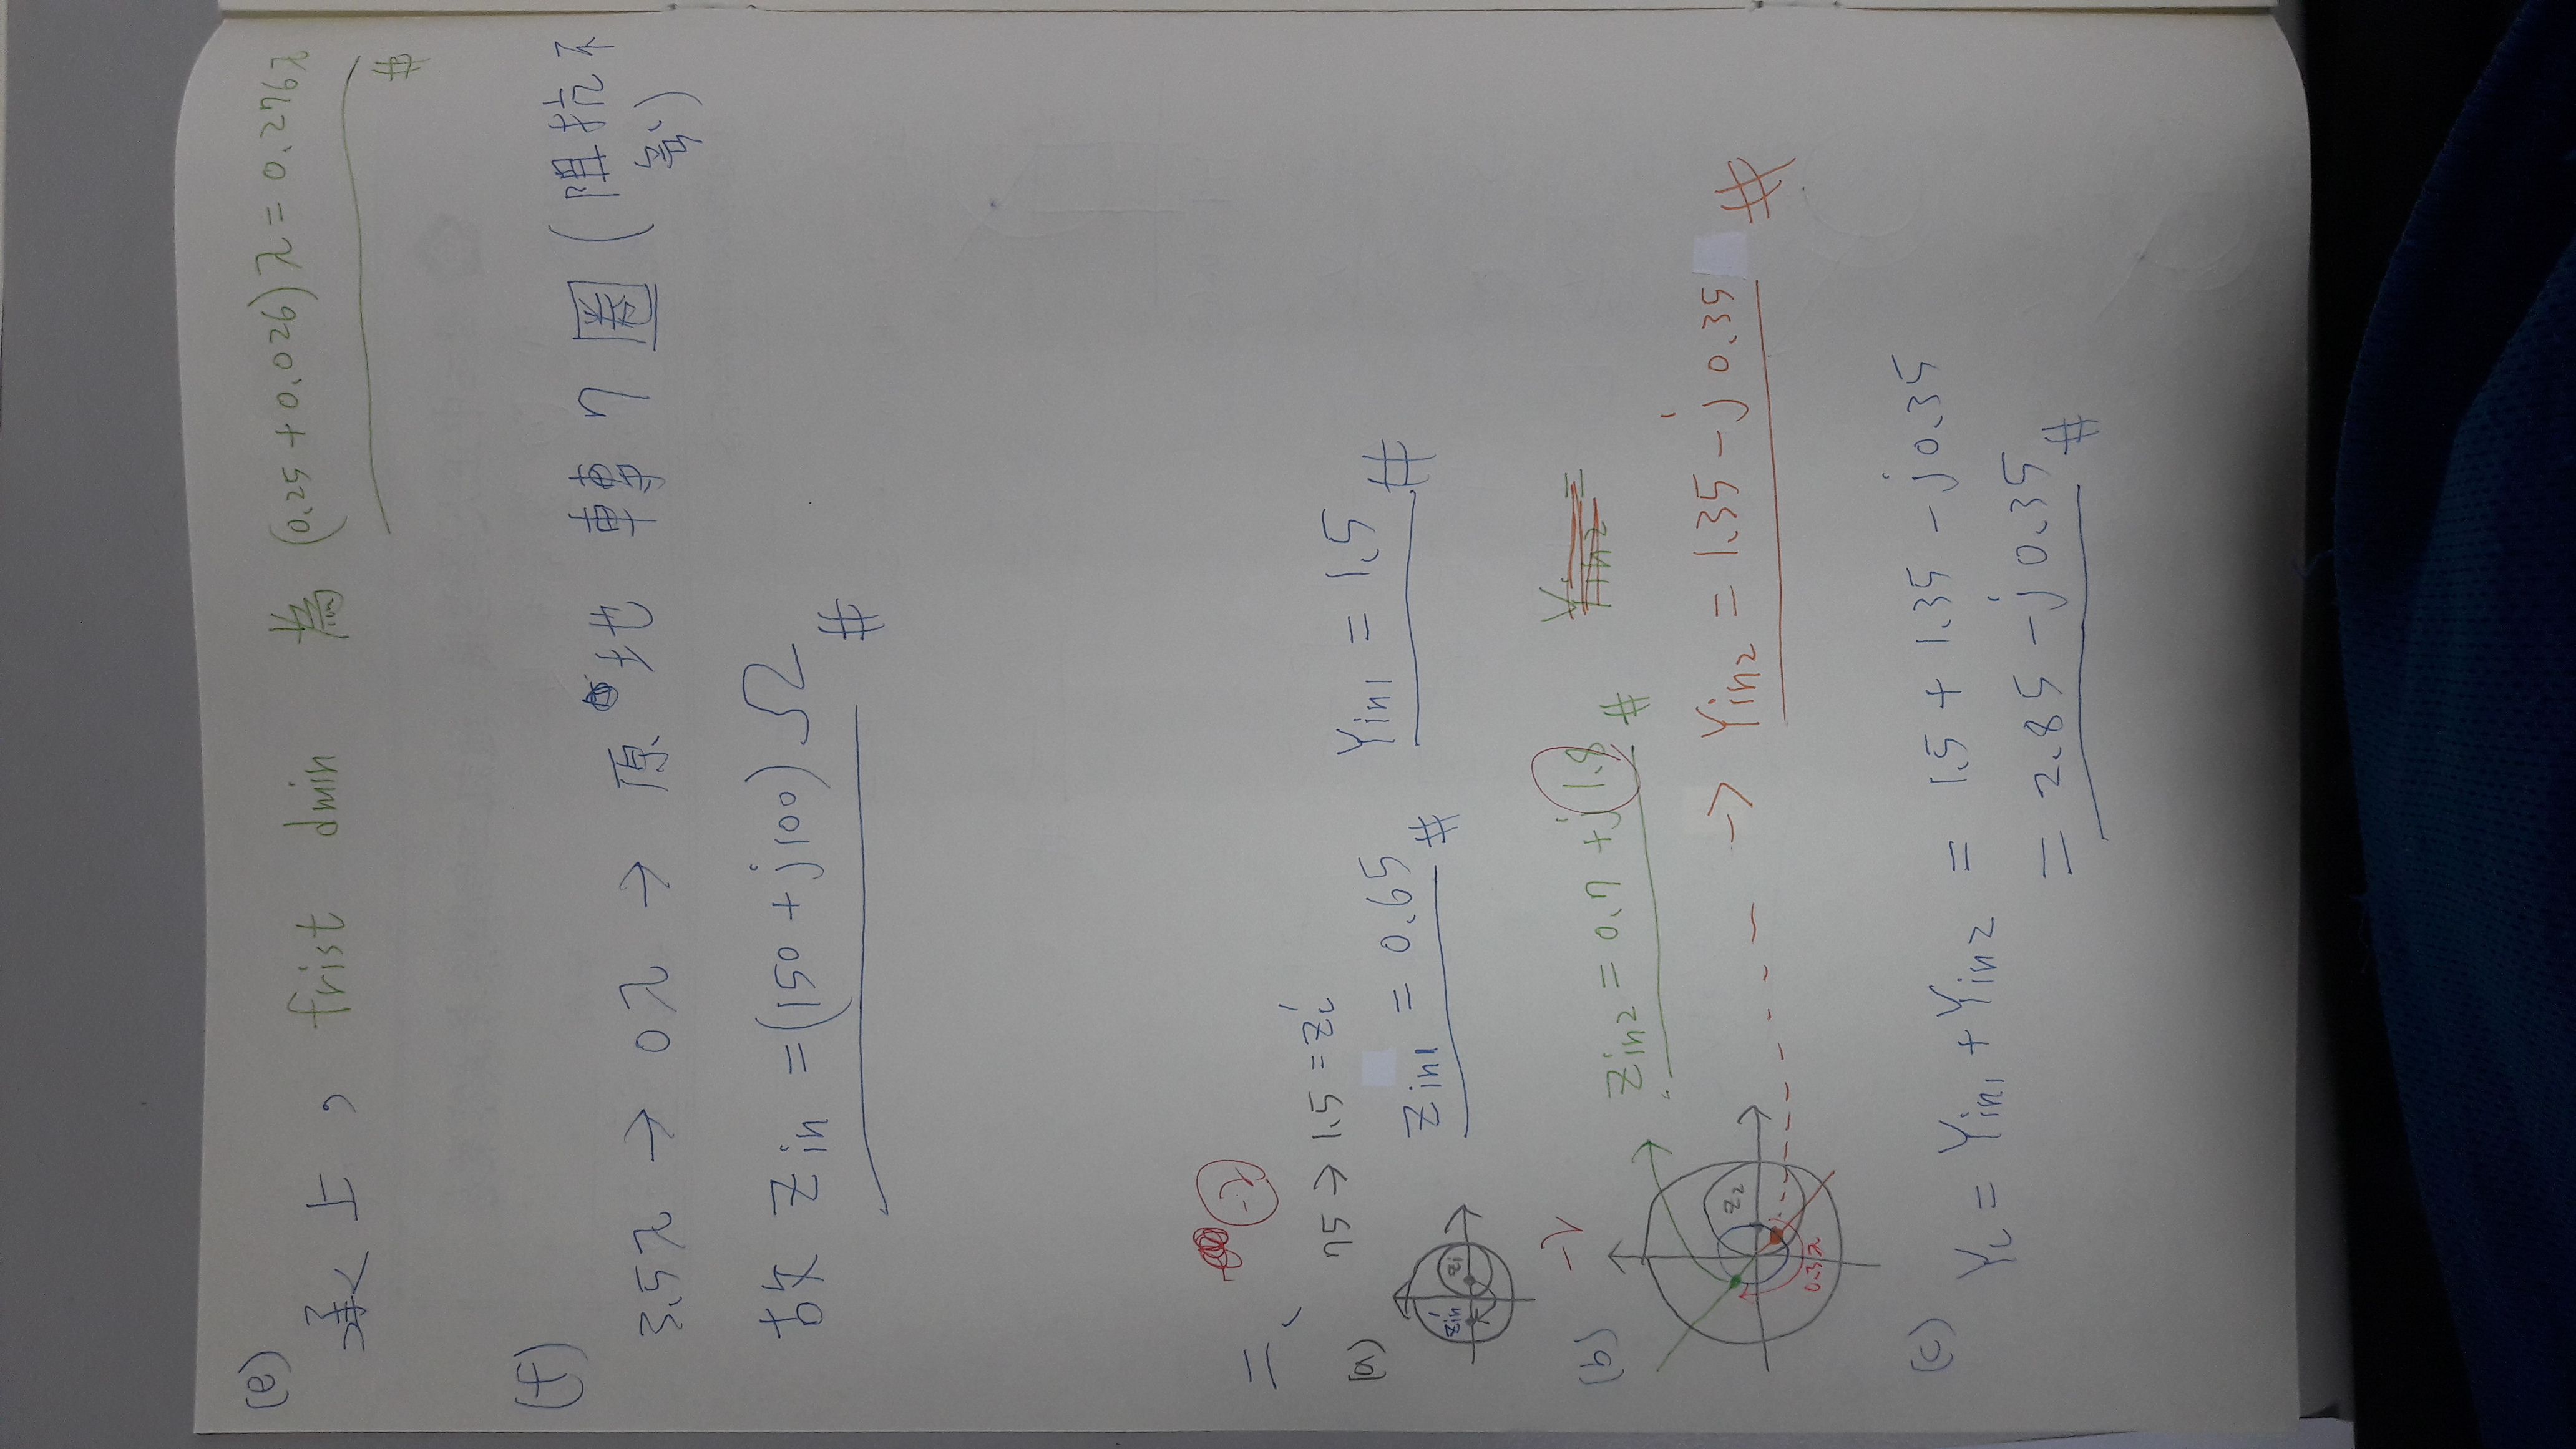 (e)
承上, frist dmin 為 (0.25+0.026)λ=0.276λ
#
(f)
3.5λ → 0λ → 原地轉7圈(阻抗不
變)
故 Zin =(150+j100)Ω #
二、 -2
75→1.5=Zi'
(a) Zin1 = 0.65 # Yin1 = 1.5 #
Zin' Zi
-2
(b) Zin2 = 0.7+j1.8 # Yin2 =
Z2
→ Yin2 = 1.35-j0.35 #
0.3λ
(c) YL = Yin1+Yin2 = 1.5+1.35-j0.35
= 2.85-j0.35 #